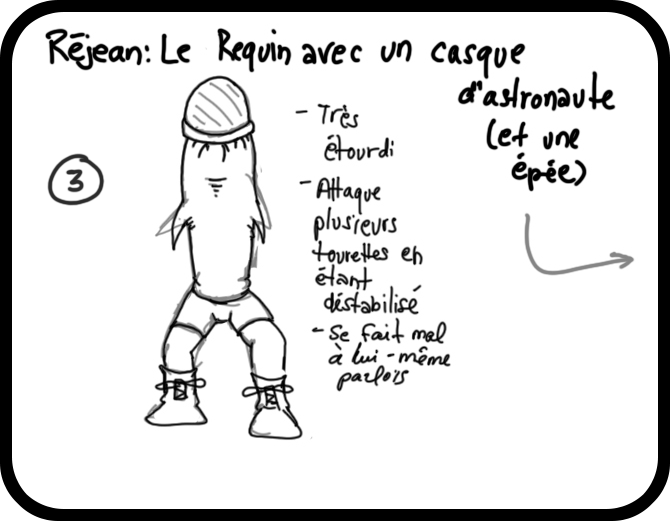 Réjean: Le Requin avec un casque
d'astronaute
(et une
épée)
3
- Très
étourdi
- Attaque
plusieurs
tourettes en
étant
déstabilisé
- Se fait mal
à lui-même
parfois